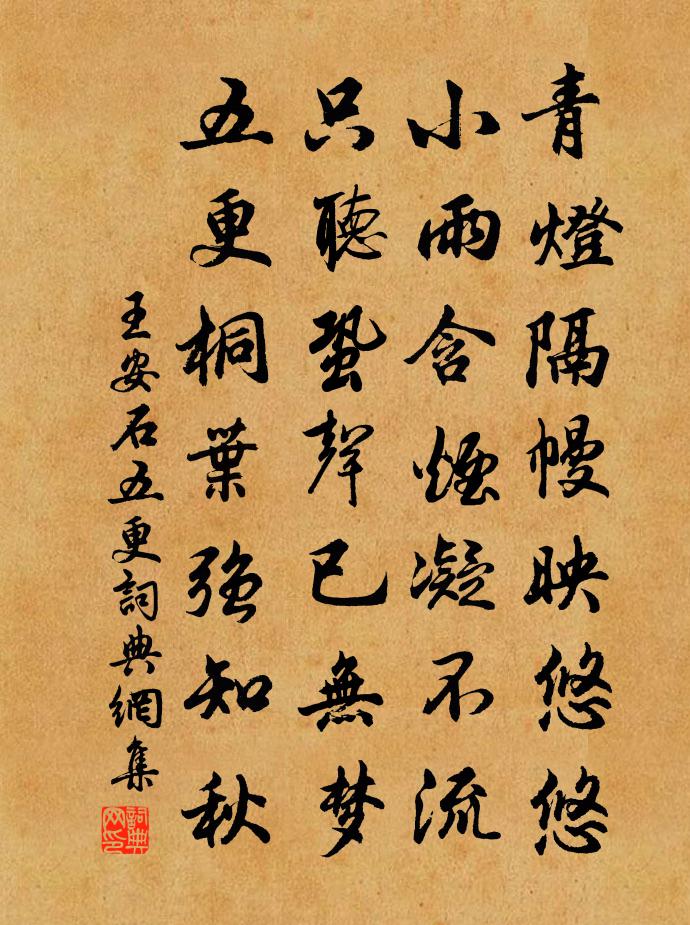 青燈隔幔映悠悠
小雨含煙凝不流
只聽蛩聲已無梦
五更桐葉強知秋
王安石五更詞典網集
詞典网印